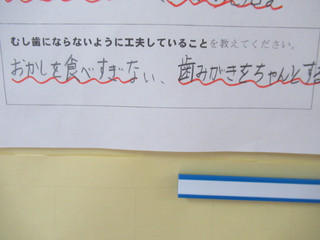 むし歯にならないように工夫していることを教えてください。
おかしを食べすぎない、歯みがきをちゃんとする